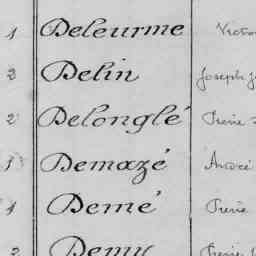 1 Deleurme Victor
2 Delin Joseph
2 Delonglé Pierre
1 Demazé André
1 Demé Pierre
2 Demy Pierre